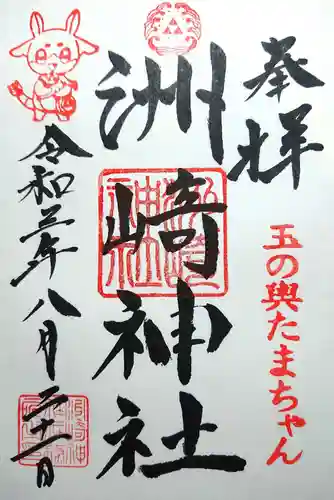 奉拝
洲崎神社
玉の輿たまちゃん
令和二年八月二十一日